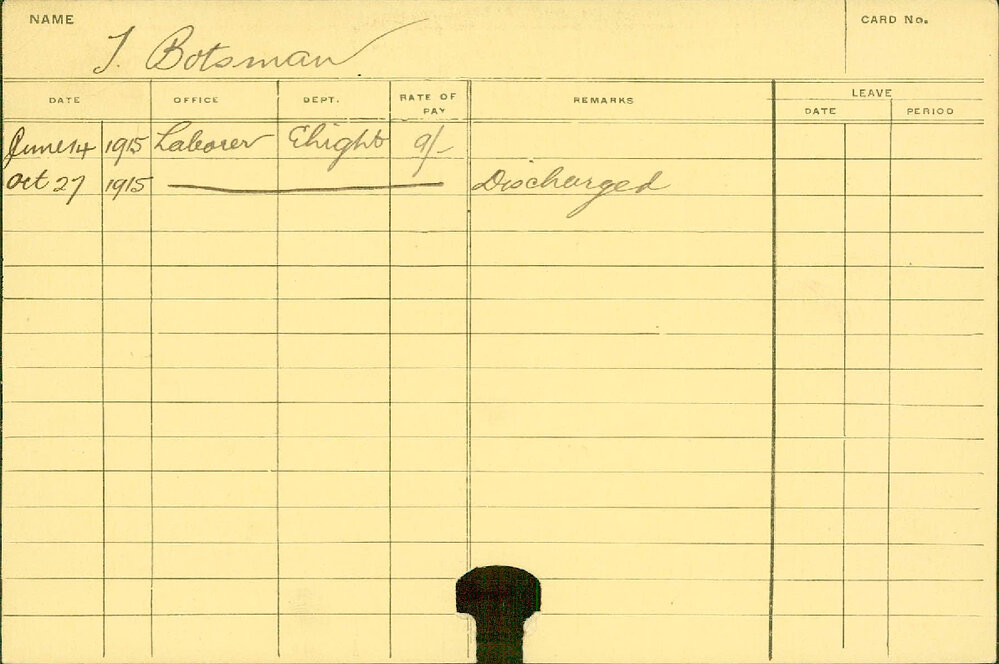 NAME
CARD No.
T. Botsman
DATE OFFICE DEPT. RATE OF PAY REMARKS LEAVE
DATE PERIOD
June 14 1915 Laborer Elight 9/-
Oct 27 1915 Discharged